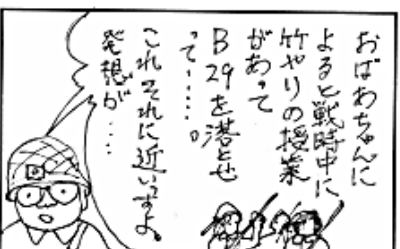 おばあちゃんに
よると戦時中に
竹やりの授業
があって
B29を落とせ
って……。
これそれに近いっすよ、
発想が……